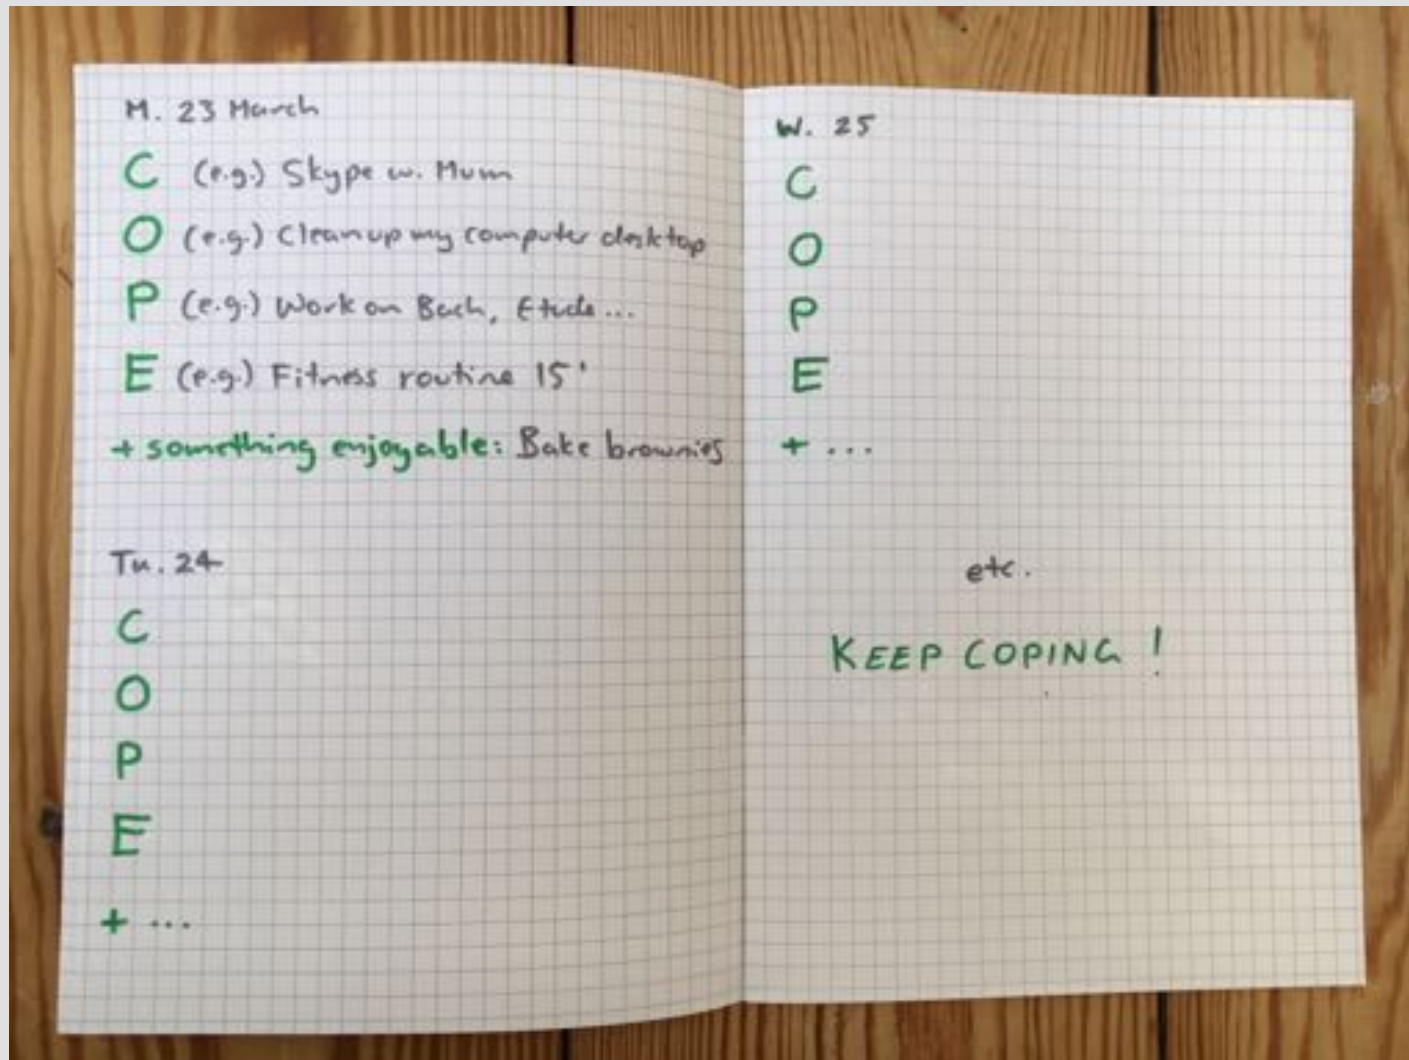 M. 23 March
C (e.g.) Skype w. Mum
O (e.g.) Clean up my computer desktop
P (e.g.) Work on Bach, Etude...
E (e.g.) Fitness routine 15'
+ something enjoyable: Bake brownies
Tu. 24
C
O
P
E
+ ...
W. 25
C
O
P
E
+ ...
etc.
KEEP COPING !